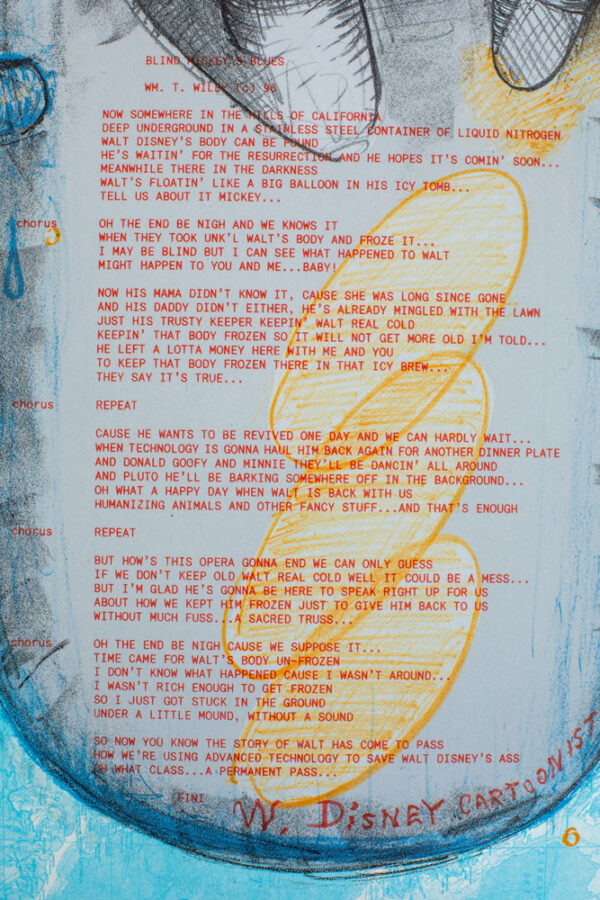 BLIND MICKEY'S BLUES
WM. T. WILEY (C) 96
NOW SOMEWHERE IN THE HILLS OF CALIFORNIA
DEEP UNDERGROUND IN A STAINLESS STEEL CONTAINER OF LIQUID NITROGEN
WALT DISNEY'S BODY CAN BE FOUND
HE'S WAITIN' FOR THE RESURRECTION AND HE HOPES IT'S COMIN' SOON...
MEANWHILE THERE IN THE DARKNESS
WALT'S FLOATIN' LIKE A BIG BALLOON IN HIS ICY TOMB...
TELL US ABOUT IT MICKEY...
chorus OH THE END BE NIGH AND WE KNOWS IT
WHEN THEY TOOK UNK'L WALT'S BODY AND FROZE IT...
I MAY BE BLIND BUT I CAN SEE WHAT HAPPENED TO WALT
MIGHT HAPPEN TO YOU AND ME...BABY!
NOW HIS MAMA DIDN'T KNOW IT, CAUSE SHE WAS LONG SINCE GONE
AND HIS DADDY DIDN'T EITHER, HE'S ALREADY MINGLED WITH THE LAWN
JUST HIS TRUSTY KEEPER KEEPIN' WALT REAL COLD
KEEPIN' THAT BODY FROZEN SO IT WILL NOT GET MORE OLD I'M TOLD...
HE LEFT A LOTTA MONEY HERE WITH ME AND YOU
TO KEEP THAT BODY FROZEN THERE IN THAT ICY BREW...
THEY SAY IT'S TRUE...
chorus REPEAT
CAUSE HE WANTS TO BE REVIVED ONE DAY AND WE CAN HARDLY WAIT...
WHEN TECHNOLOGY IS GONNA HAUL HIM BACK AGAIN FOR ANOTHER DINNER PLATE
AND DONALD GOOFY AND MINNIE THEY'LL BE DANCIN' ALL AROUND
AND PLUTO HE'LL BE BARKING SOMEWHERE OFF IN THE BACKGROUND...
OH WHAT A HAPPY DAY WHEN WALT IS BACK WITH US
HUMANIZING ANIMALS AND OTHER FANCY STUFF...AND THAT'S ENOUGH
chorus REPEAT
BUT HOW'S THIS OPERA GONNA END WE CAN ONLY GUESS
IF WE DON'T KEEP OLD WALT REAL COLD WELL IT COULD BE A MESS...
BUT I'M GLAD HE'S GONNA BE HERE TO SPEAK RIGHT UP FOR US
ABOUT HOW WE KEPT HIM FROZEN JUST TO GIVE HIM BACK TO US
WITHOUT MUCH FUSS...A SACRED TRUSS...
chorus OH THE END BE NIGH CAUSE WE SUPPOSE IT...
TIME CAME FOR WALT'S BODY UN-FROZEN
I DON'T KNOW WHAT HAPPENED CAUSE I WASN'T AROUND...
I WASN'T RICH ENOUGH TO GET FROZEN
SO I JUST GOT STUCK IN THE GROUND
UNDER A LITTLE MOUND, WITHOUT A SOUND
SO NOW YOU KNOW THE STORY OF WALT HAS COME TO PASS
HOW WE'RE USING ADVANCED TECHNOLOGY TO SAVE WALT DISNEY'S ASS
OH WHAT CLASS...A PERMANENT PASS...
FINI
W. DISNEY CARTOONIST
6